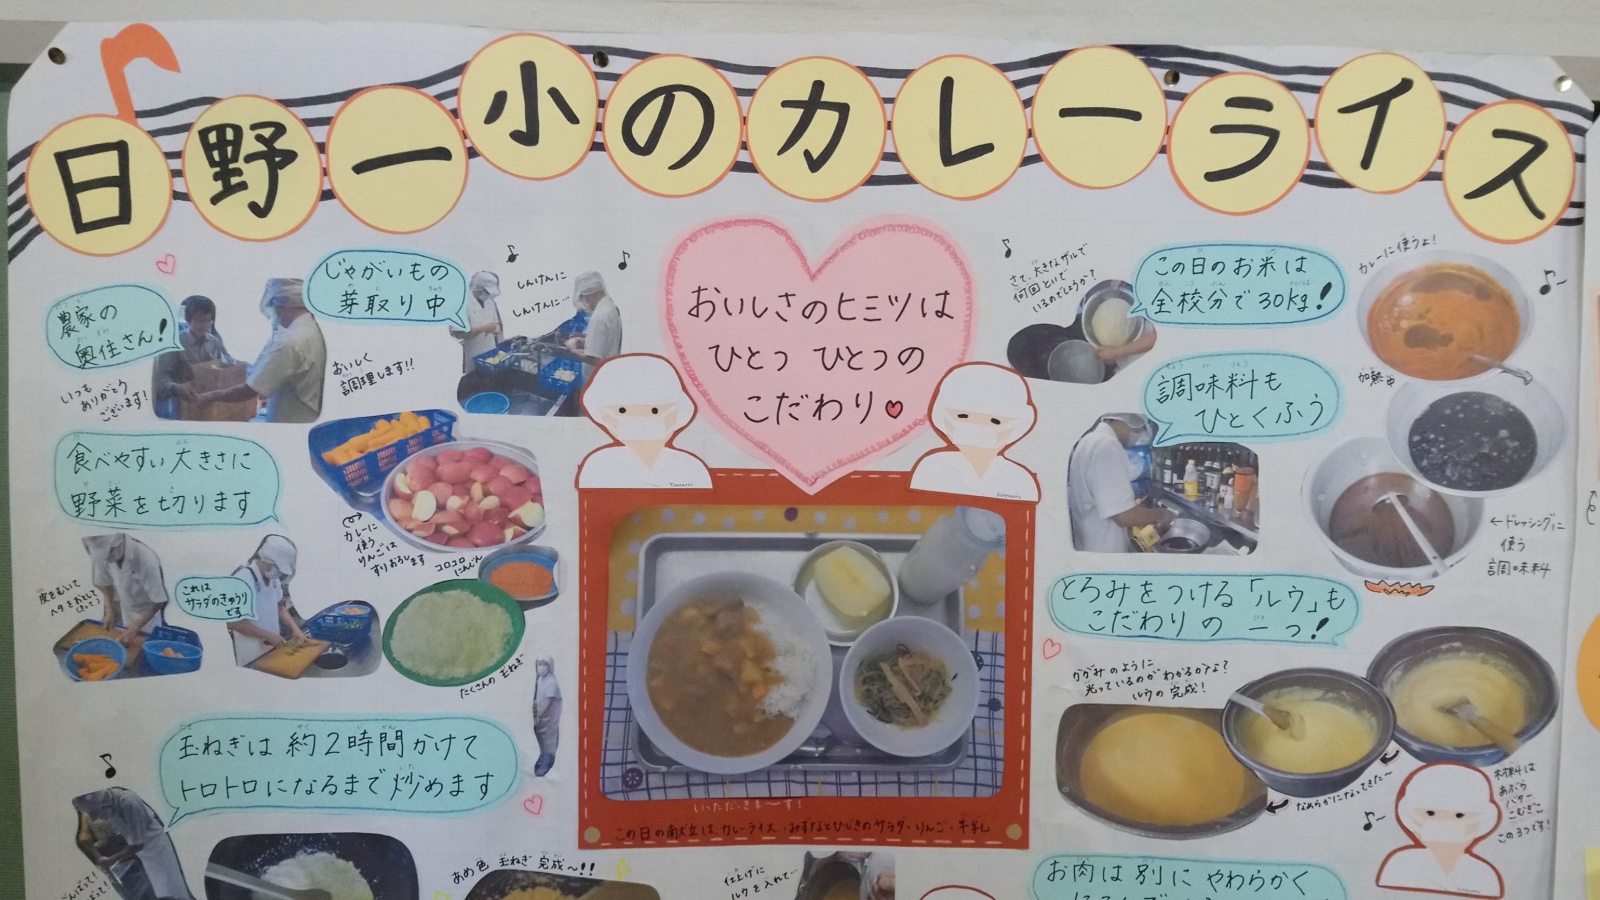 日野一小のカレーライス
農家の
奥住さん!
いつも
ありがとう
ございます!
じゃがいもの
芽取り中
おいしく
調理します!!
しんけんに
しんけんに…
おいしさのヒミツは
ひとつ ひとつの
こだわり
さて、大きなザルで
何回といで
いるのでしょうか?
この日のお米は
全校分で30kg!
カレーに使うよ!
加熱中
調味料も
ひとくふう
←ドレッシングに
使う
調味料
食べやすい大きさに
野菜を切ります
カレーに
使う
りんごは
すりおろします
コロコロ
にんじん
皮をむいて
ヘタをおとして
これは
サラダのきゅうり
です
たくさんの玉ねぎ
とろみをつける「ルウ」も
こだわりの一つ!
かがみのように
光っているのがわかるかな?
ルウの完成!
なめらかになってきた~
材料は
あぶら
バター
こむぎこ
この3つです!
玉ねぎは約2時間かけて
トロトロになるまで炒めます
いただきま~す!
この日の献立は、カレーライス・みずなとひじきのサラダ・りんご・牛乳
あめ色 玉ねぎ 完成~!!
仕上げに
ルウを入れて…
お肉は別にやわらかく